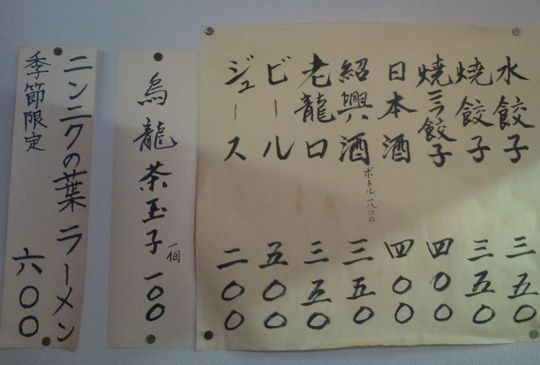 水餃子 三五〇
焼餃子 三五〇
焼ニラ餃子 四〇〇
日本酒 四〇〇
紹興酒 三五〇
ボトル一八〇〇
老龍口 三五〇
ビール 五〇〇
ジュース 二〇〇
烏龍茶玉子 一個 一〇〇
ニンニクの葉ラーメン
季節限定 六〇〇